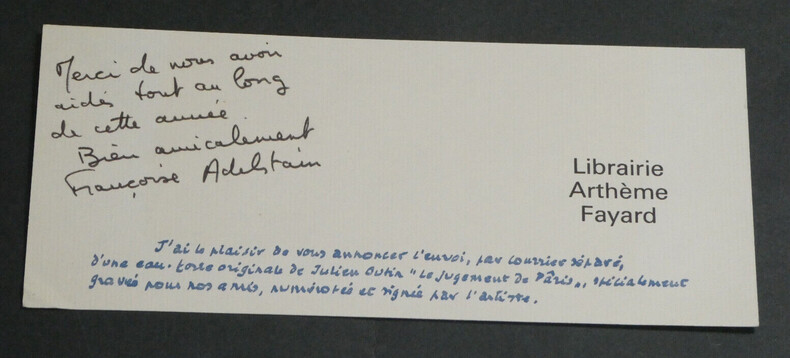 Merci de nous avoir
aidés tout au long
de cette année.
Bien amicalement
Françoise Adelstain
Librairie
Arthème
Fayard
J'ai le plaisir de vous annoncer l'envoi, par courrier séparé,
d'une eau-forte originale de Julien Outin "Le jugement de Pâris", spécialement
gravée pour nos amis, numérotée et signée par l'artiste.